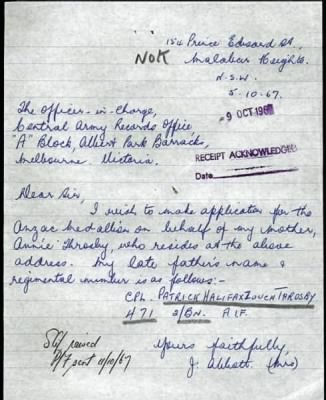 154 Prince Edward St.
NOK
Malabar Heights.
N.S.W.
5.10.67.
The Officer-in-Charge,
9 OCT 1967
Central Army Records Office
"A" Block, Albert Park Barracks,
RECEIPT ACKNOWLEDGED
Melbourne. Victoria.
Date
Dear Sir,
I wish to make application for the
Anzac Medallion on behalf of my mother,
Annie Throsby, who resides at the above
address. My late father's name &
regimental number is as follows:-
CPL. PATRICK HALIFAX ZOUCH THROSBY
471 2/BN. A.I.F.
raised
sent 11/10/67
Yours faithfully,
J. Abbott. (Mrs)